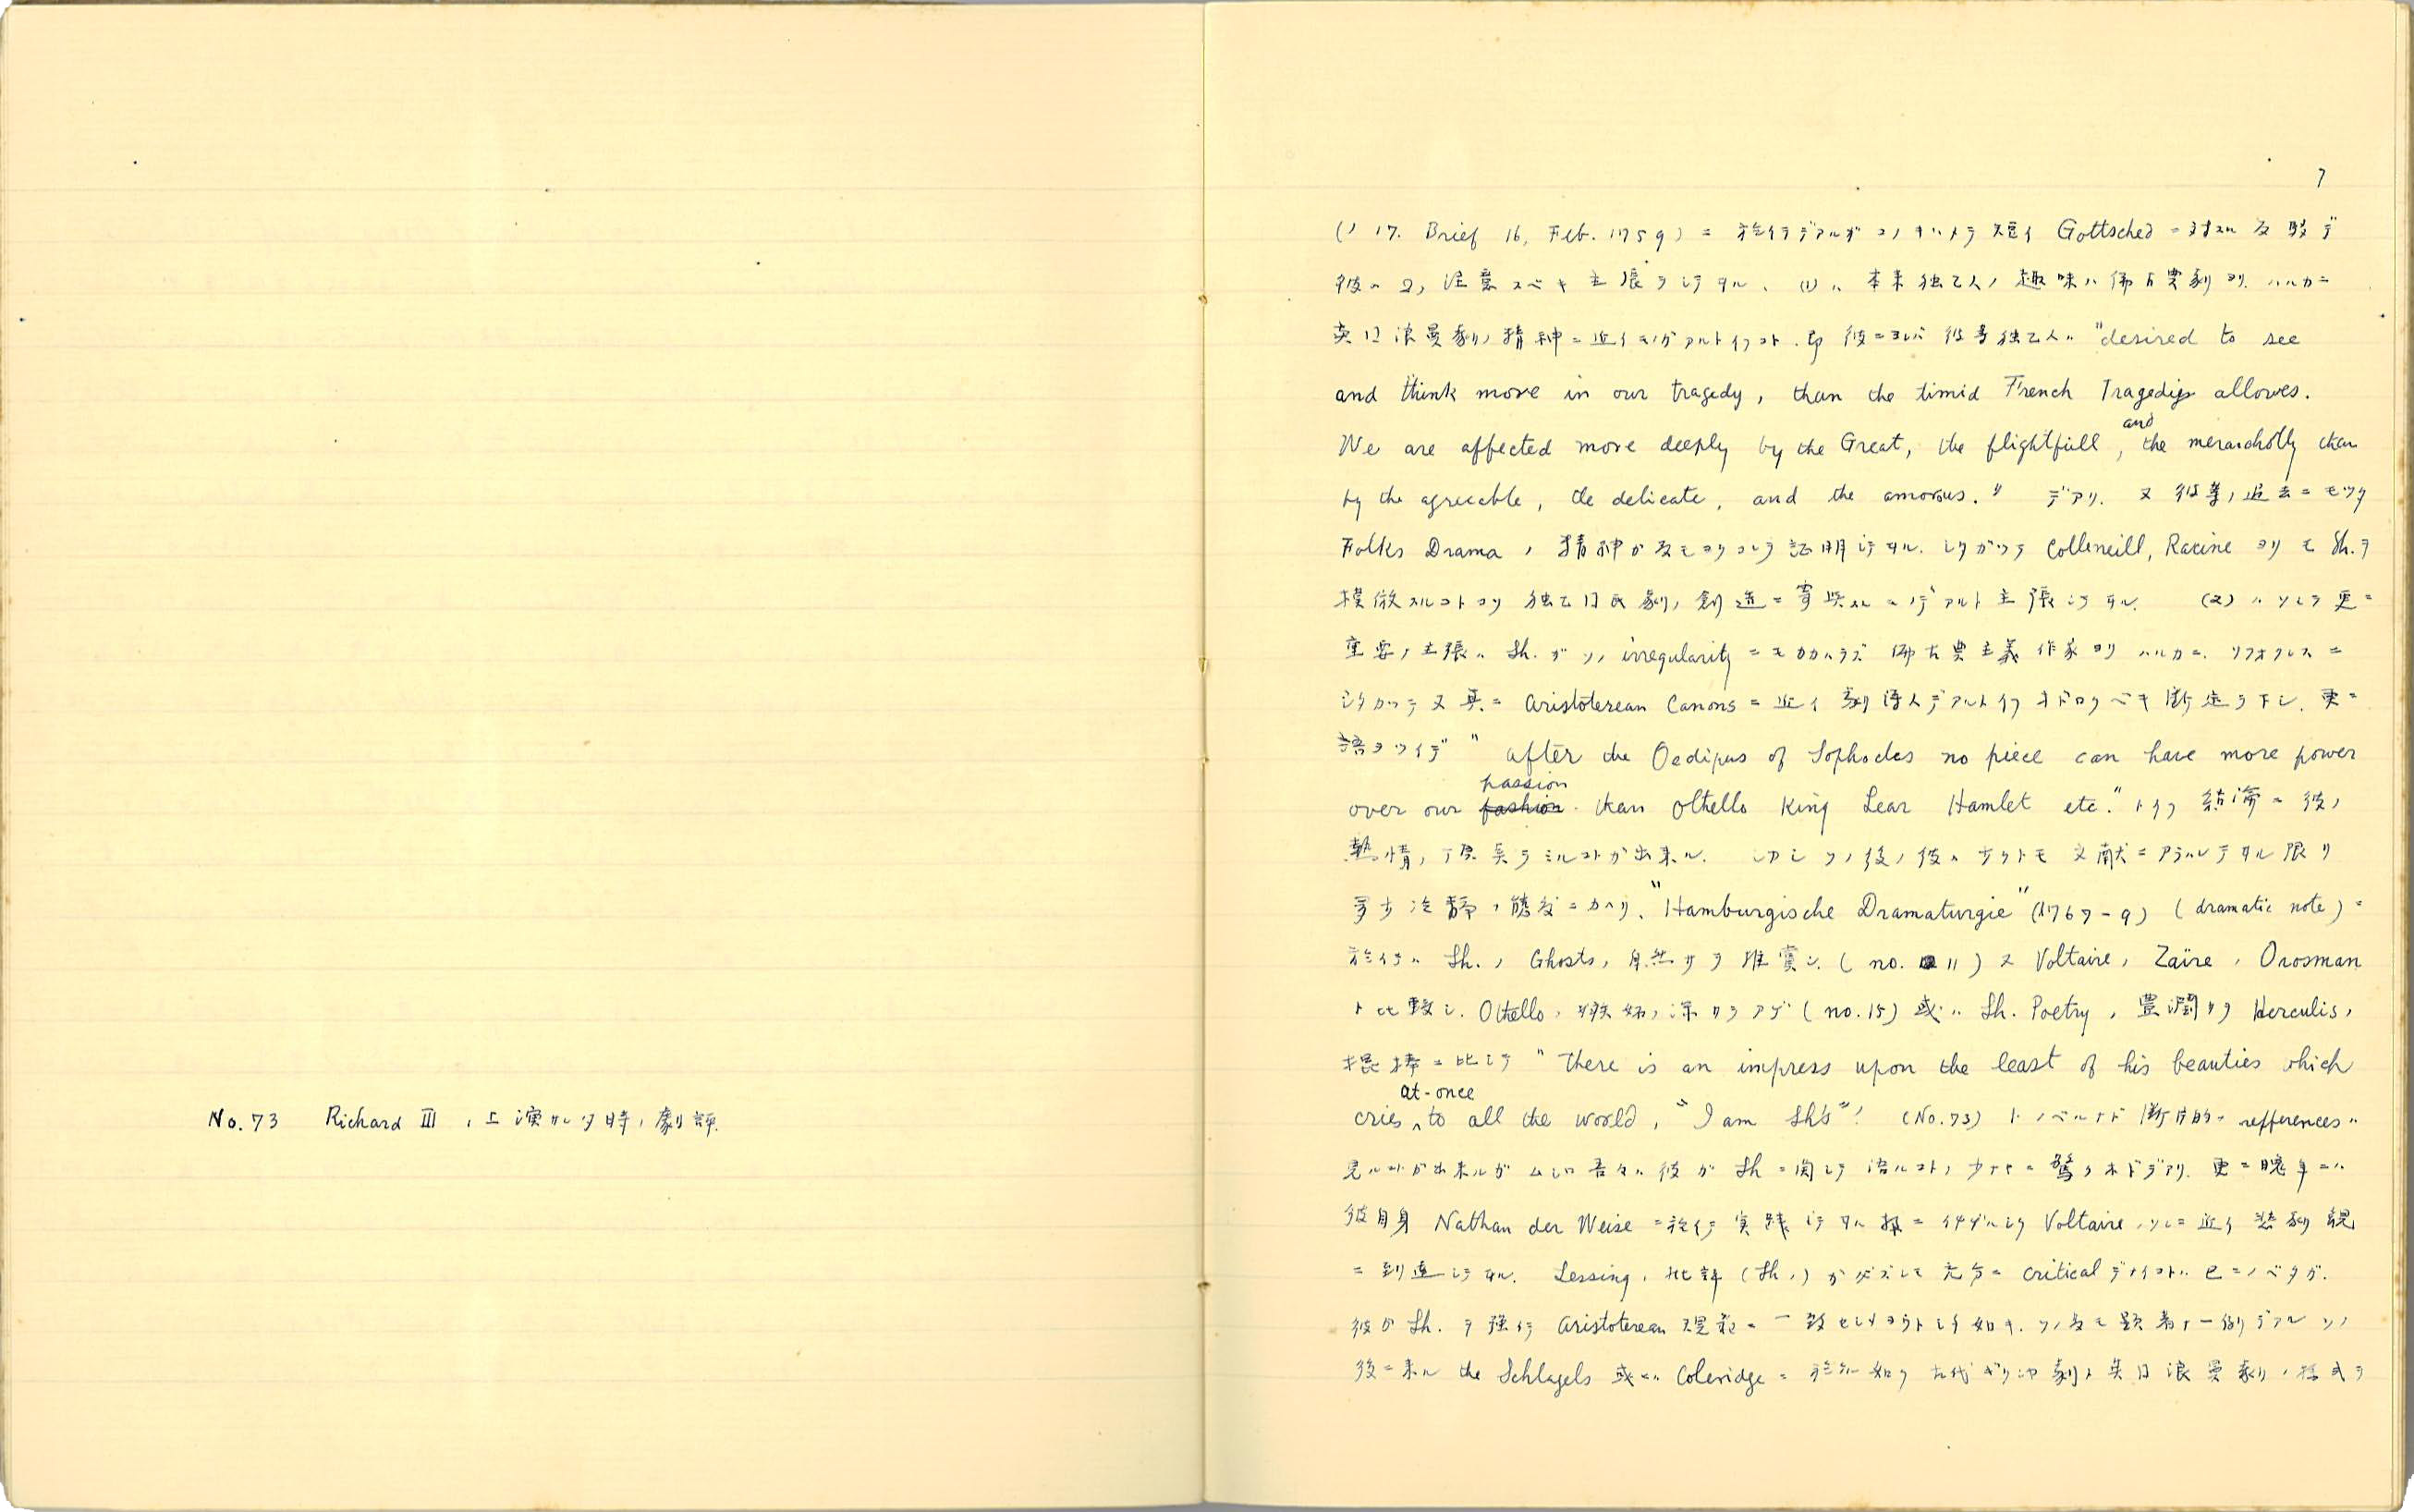 No. 73 Richard III ノ上演サレタ時ノ劇評.
7
(ノ 17. Brief 16, Feb. 1759) ニ於イテデアルガコノキハメテ短イ Gottsched ニ対スル反駁デ
彼ハ 2ノ注意スベキ主張ヲシテヰル、(1) ハ本来独乙人ノ趣味ハ佛古典劇ヨリハルカニ
英国浪曼劇ノ精神ニ近イモノガアルトイフコト. 即彼ニヨレバ彼等独乙人ハ "desired to see
and think more in our tragedy, than the timid French Tragedies allowes.
We are affected more deeply by the Great, the flightfull, and the merancholly than
by the agreeable, the delicate, and the amorous." デアリ. 又彼等ノ過去ニモツタ
Folks Drama ノ精神が又モヨクコレヲ証明シテヰル. シタガツテ Colleneill, Racine ヨリモ Sh. ヲ
模倣スルコトコソ独乙国民劇ノ創造ニ寄与スルモノデアルト主張シテヰル. (2) ハソレヨリ更ニ
重要ノ主張ハ Sh. ガソノ irregularity ニモカカハラズ佛古典主義作家ヨリハルカニ. ソフオクレスニ
シタガツテ又真ニ Aristoterean Canons ニ近イ劇詩人デアルトイフオドロクベキ断定ヲ下シ. 更ニ
語ヲツイデ " after the Oedipus of Sophocles no piece can have more power
over our passion than Othello King Lear Hamlet etc." トイフ結論ニ彼ノ
熱情ノ頂点ヲミルコトが出来ル. シカシソノ後ノ彼ハ少クトモ文献ニアラハレテヰル限リ
多少冷静ノ態度ニカヘリ、"Hamburgische Dramaturgie" (1767-9) (dramatic note) ニ
於イテハ Sh. ノ Ghosts ノ自然サヲ推賞シ. (no. 11) 又 Voltaire ノ Zaïre ノ Orosman
ト比較シ. Othello ノ嫉妬ノ深サヲアゲ (no. 15) 或ハ Sh. Poetry ノ豊潤サヲ Herculis ノ
棍棒ニ比シテ " There is an impress upon the least of his beauties which
cries at-once to all the world, "I am Sh's"! (No. 73) トノベルナド断片的ナ refferences ハ
見ルコトが出来ルガムシロ吾々ハ彼が Sh ニ関シテ語ルコトノ少ナサニ驚クホドデアリ. 更ニ晩年ニハ
彼自身 Nathan der Weise ニ於イテ実践シテヰル様ニイチヂルシク Voltaire ノソレニ近イ悲劇観
ニ到達シテヰル. Lessing ノ批評 (Sh ノ) が必ズシモ充分ニ critical デナイコトハ已ニノベタガ.
彼が Sh. ヲ強イテ Aristoterean 規範ニ一致セシメヨウトシタ如キ. ソノ最モ顕著ナ一例デアルソノ
後ニ来ル the Schlagels 或ハ Coleridge ニ於ケル如ク古代ギリシヤ劇ト英国浪曼劇ノ様式ヲ